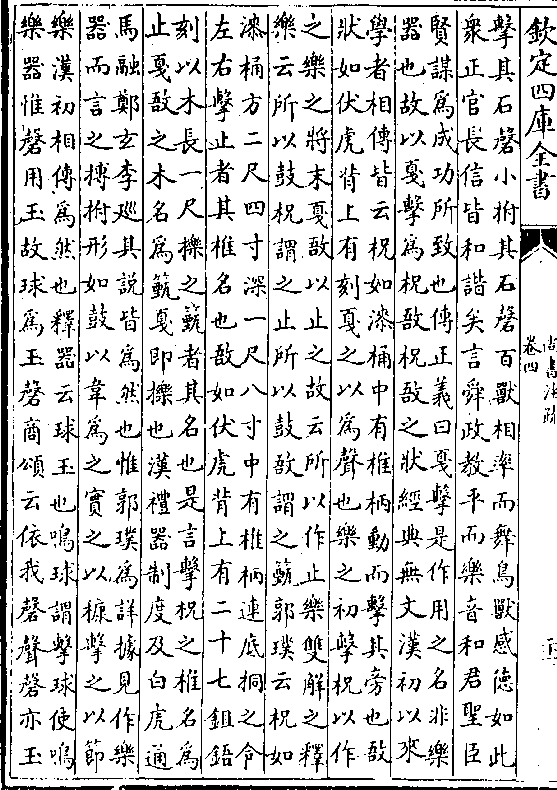 欽定四庫全書
尚書注疏
卷四
擊其石磬小拊其石磬百獸相率而舞鳥獸感德如此
衆正官長信皆和諧矣言舜政教平而樂音和君聖臣
賢謀爲成功所致也傳正義曰戛擊是作用之名非樂
器也故以戛擊爲柷敔柷敔之狀經典無文漢初以來
學者相傳皆云柷如漆桶中有椎柄動而擊其旁也敔
狀如伏虎背上有刻戛之以爲聲也樂之初擊柷以作
之樂之將末戛敔以止之故云所以作止樂雙解之釋
樂云所以鼓柷謂之止所以鼓敔謂之籈郭璞云柷如
漆桶方二尺四寸深一尺八寸中有椎柄連底桐之令
左右擊止者其椎名也敔如伏虎背上有二十七鉏鋙
刻以木長一尺擽之籈者其名也是言擊柷之椎名爲
止戛敔之木名爲籈戛即擽也漢禮器制度及白虎通
馬融鄭玄李廵其說皆爲然也惟郭璞爲詳據見作樂
器而言之搏拊形如鼓以韋爲之實之以糠擊之以節
樂漢初相傳爲然也釋器云球玉也鳴球謂擊球使鳴
樂器惟磬用玉故球爲玉磬商頌云依我磬聲磬亦玉